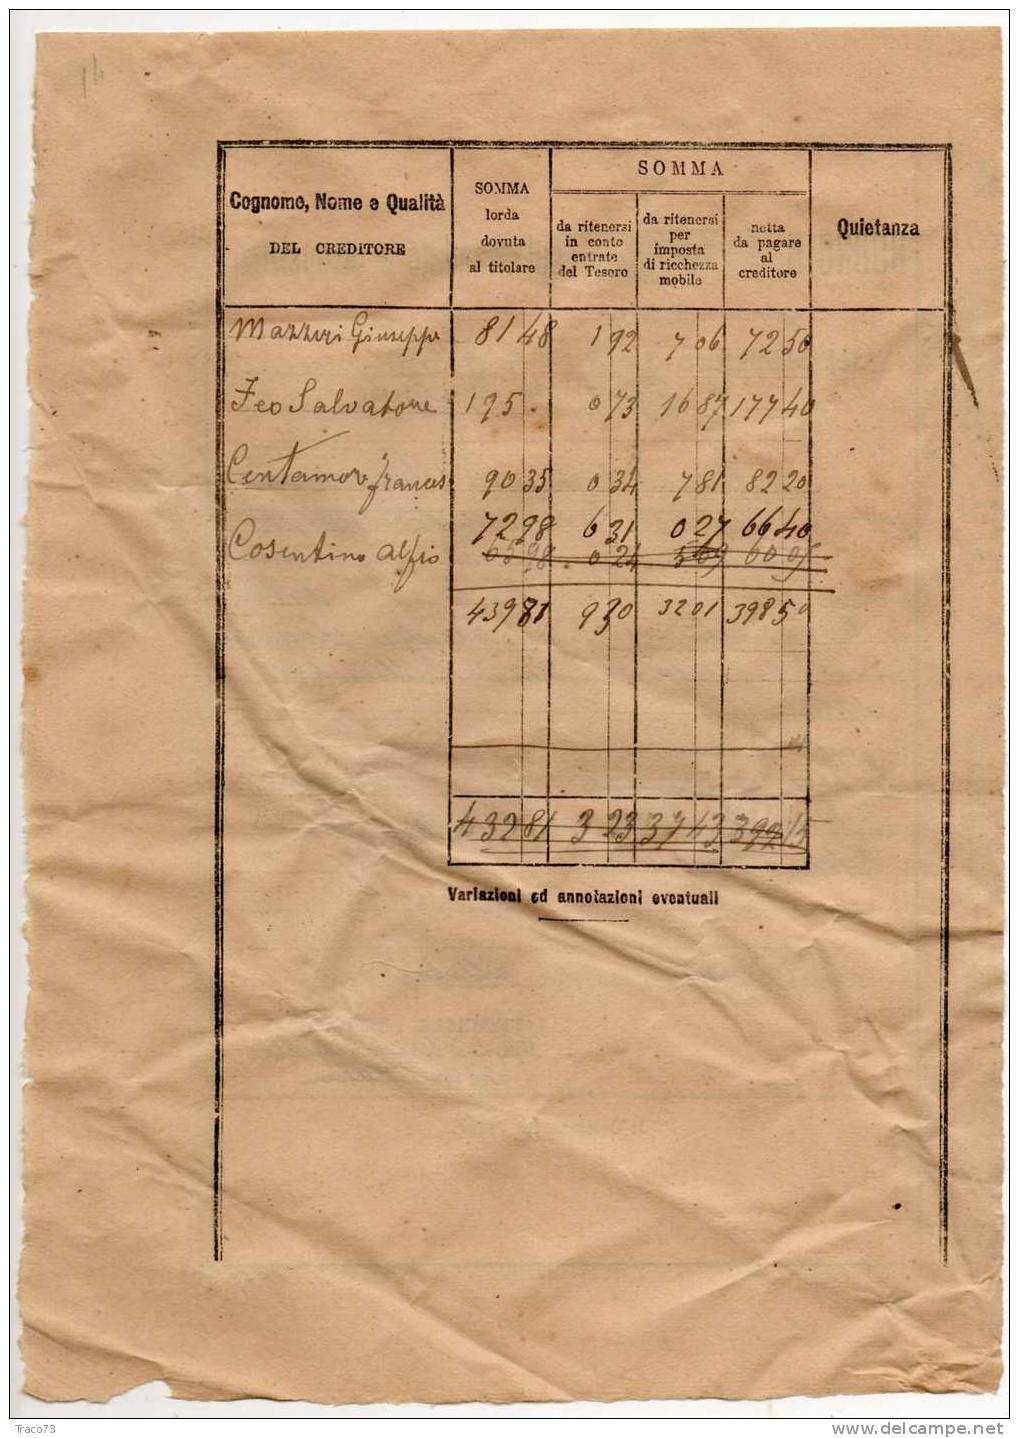 SOMMA
Cognome, Nome e Qualità
DEL CREDITORE
SOMMA
lorda
dovuta
al titolare
da ritenersi
in conto
entrate
del Tesoro
da ritenersi
per
imposta
di ricchezza
mobile
netta
da pagare
al
creditore
Quietanza
Giuseppe 81 48 1 92 7 06 72 50
Feo Salvatore 195 . 0 73 16 87 177 40
90 35 0 34 7 81 82 20
72 98 6 31 0 27 66 40
Cosentino Alfio 0 24 5 69
439 81 9 30 32 01 398 50
432 81 3 23 37 43 392 15
Variazioni ed annotazioni eventuali
Traco73
www.delcampe.net